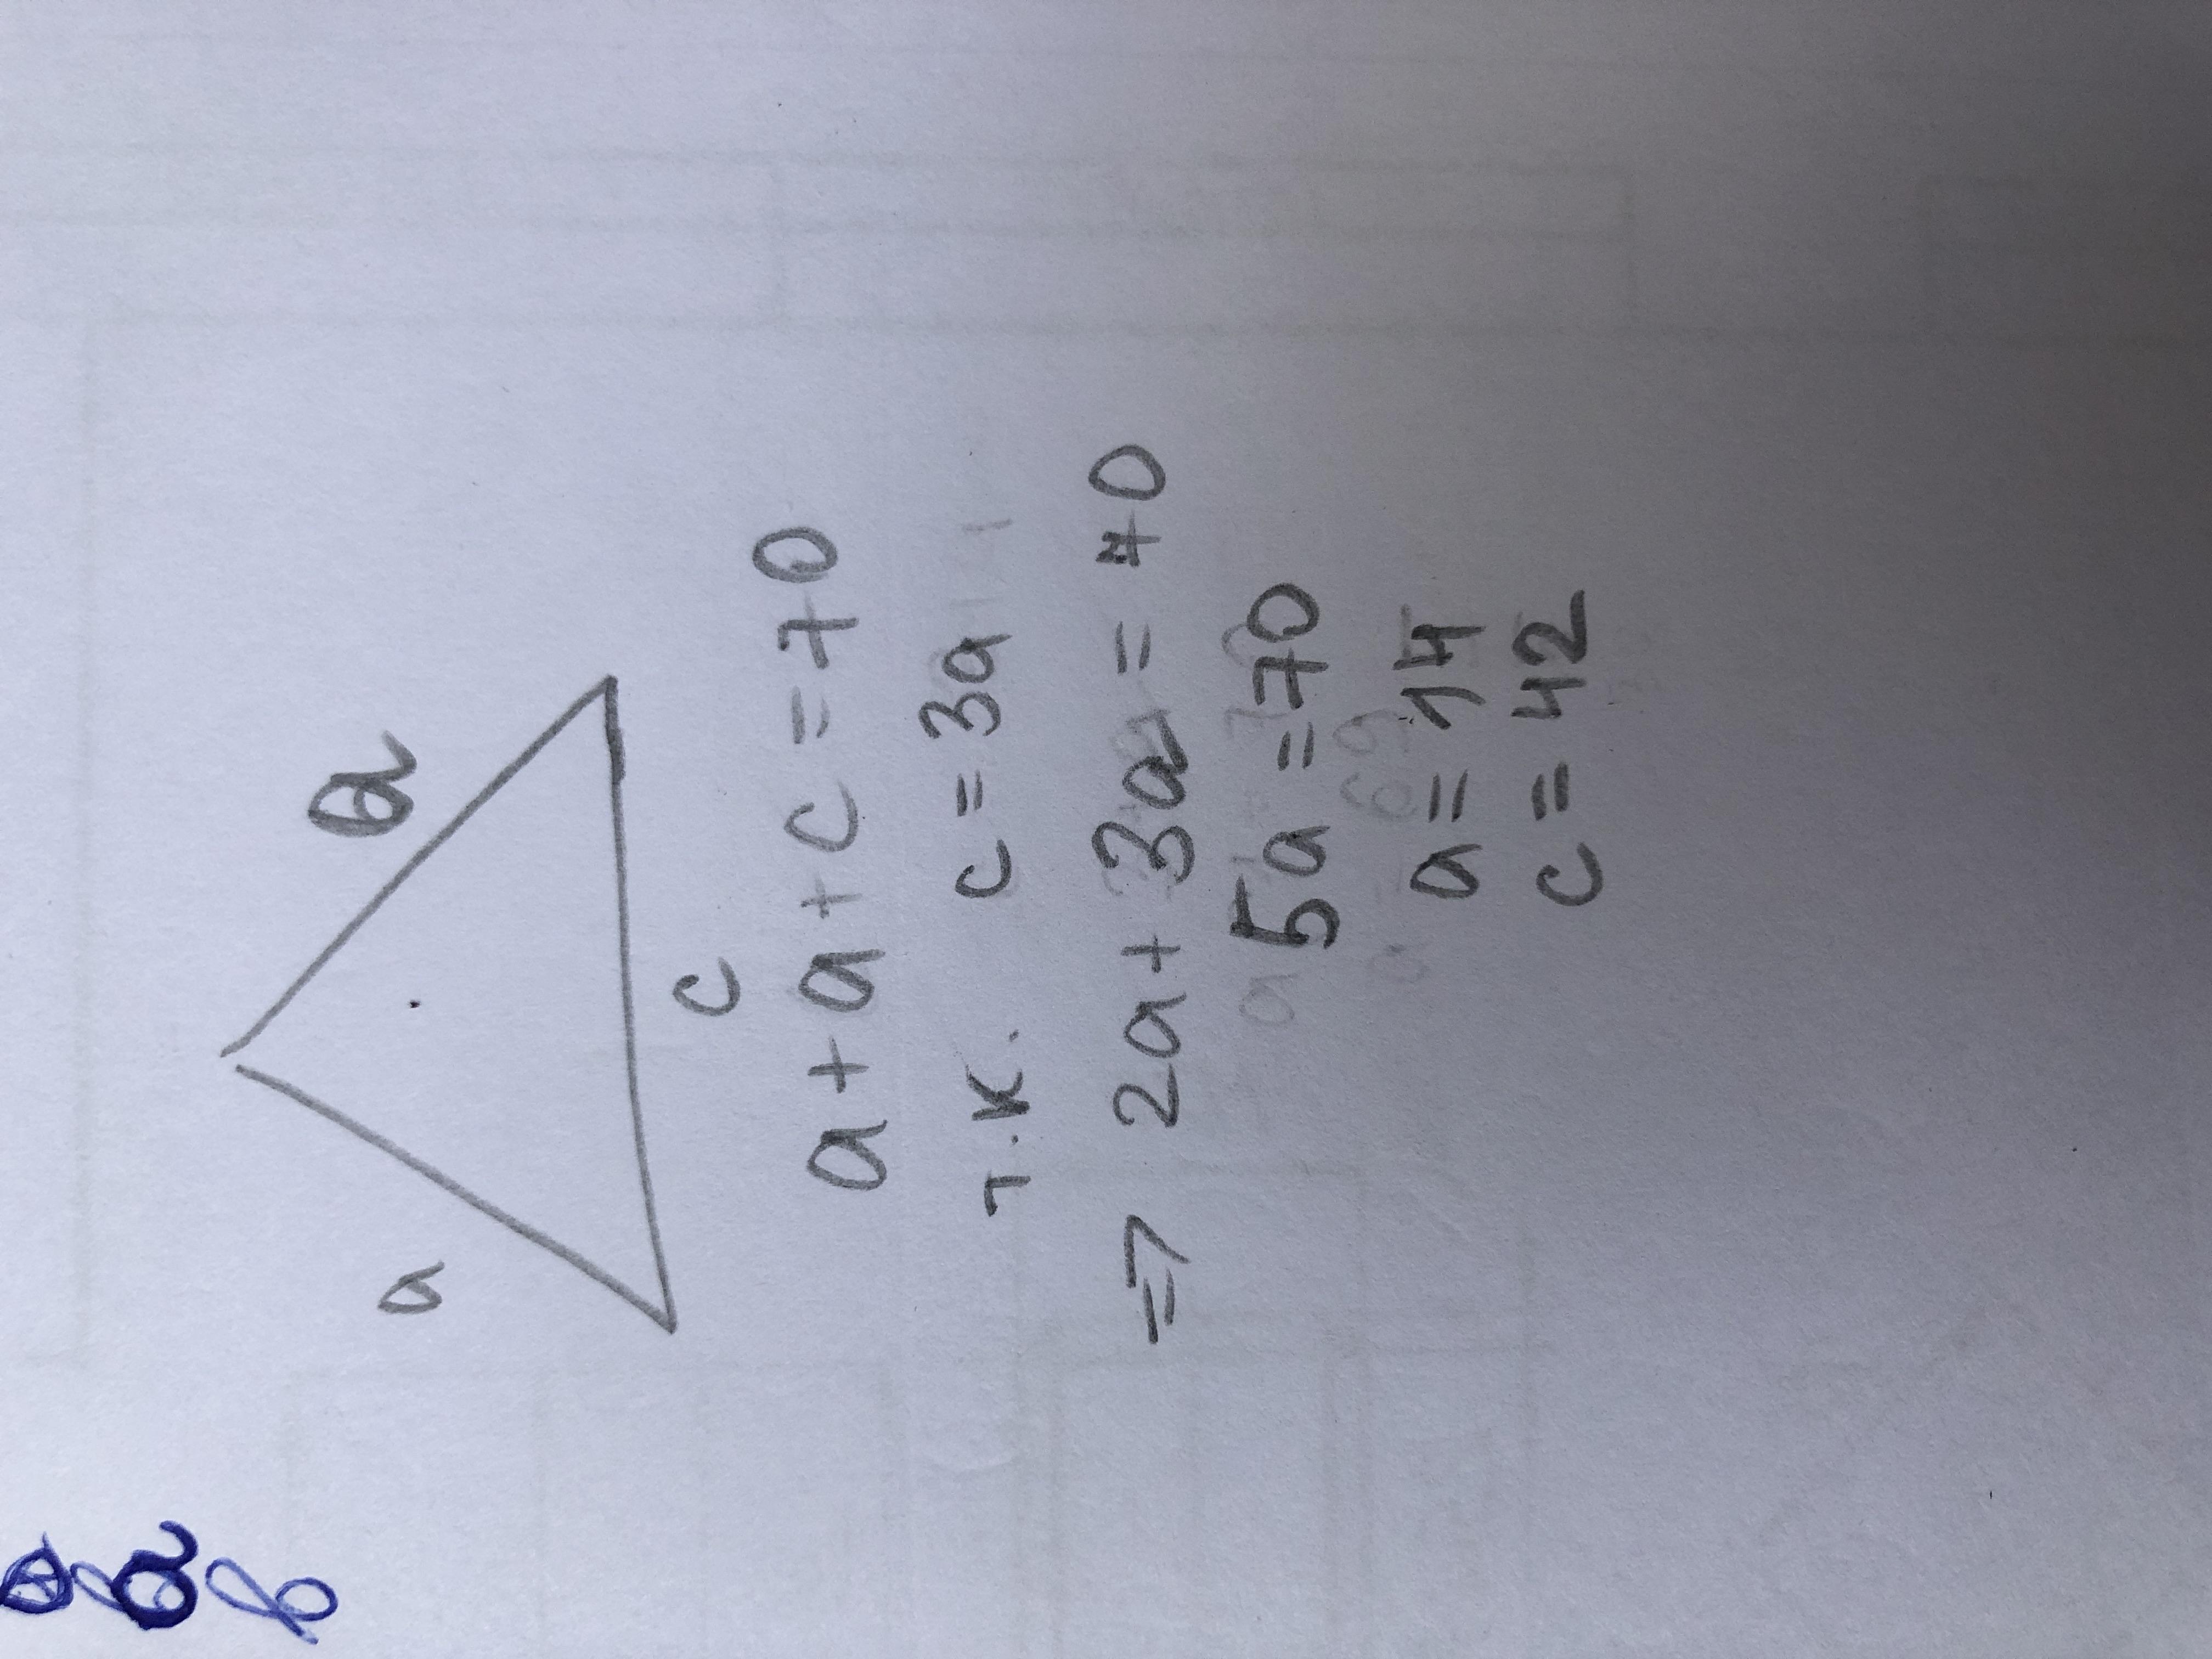 a
a
c
a + a + c = 70
т.к. c = 3a
=> 2a + 3a = 70
5a = 70
a = 14
c = 42